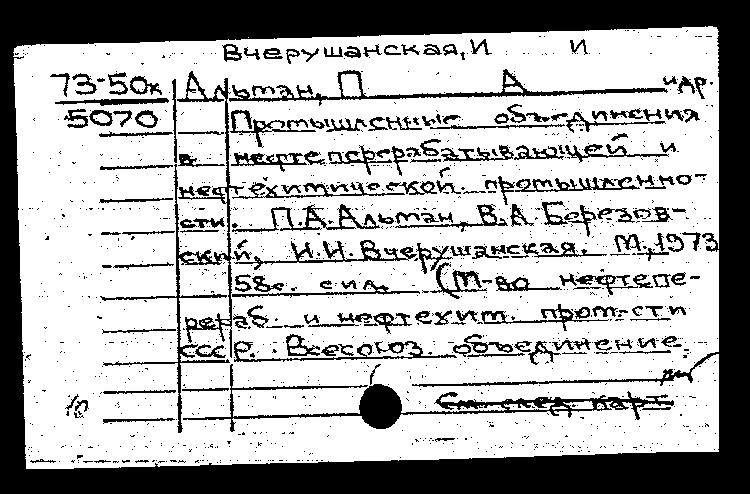 Вчерушанская, И И
73-50к Альтман, П А и др.
5070 Промышленные объединения
в нефтеперерабатывающей и
нефтехимической промышленно-
сти. П.А. Альтман, В.А. Березов-
ский, И.И. Вчерушанская. М., 1973
58с. с ил. (М-во нефтепе-
рераб. и нефтехим. пром-сти
СССР. Всесоюз. объединение
См. след. карт.
10